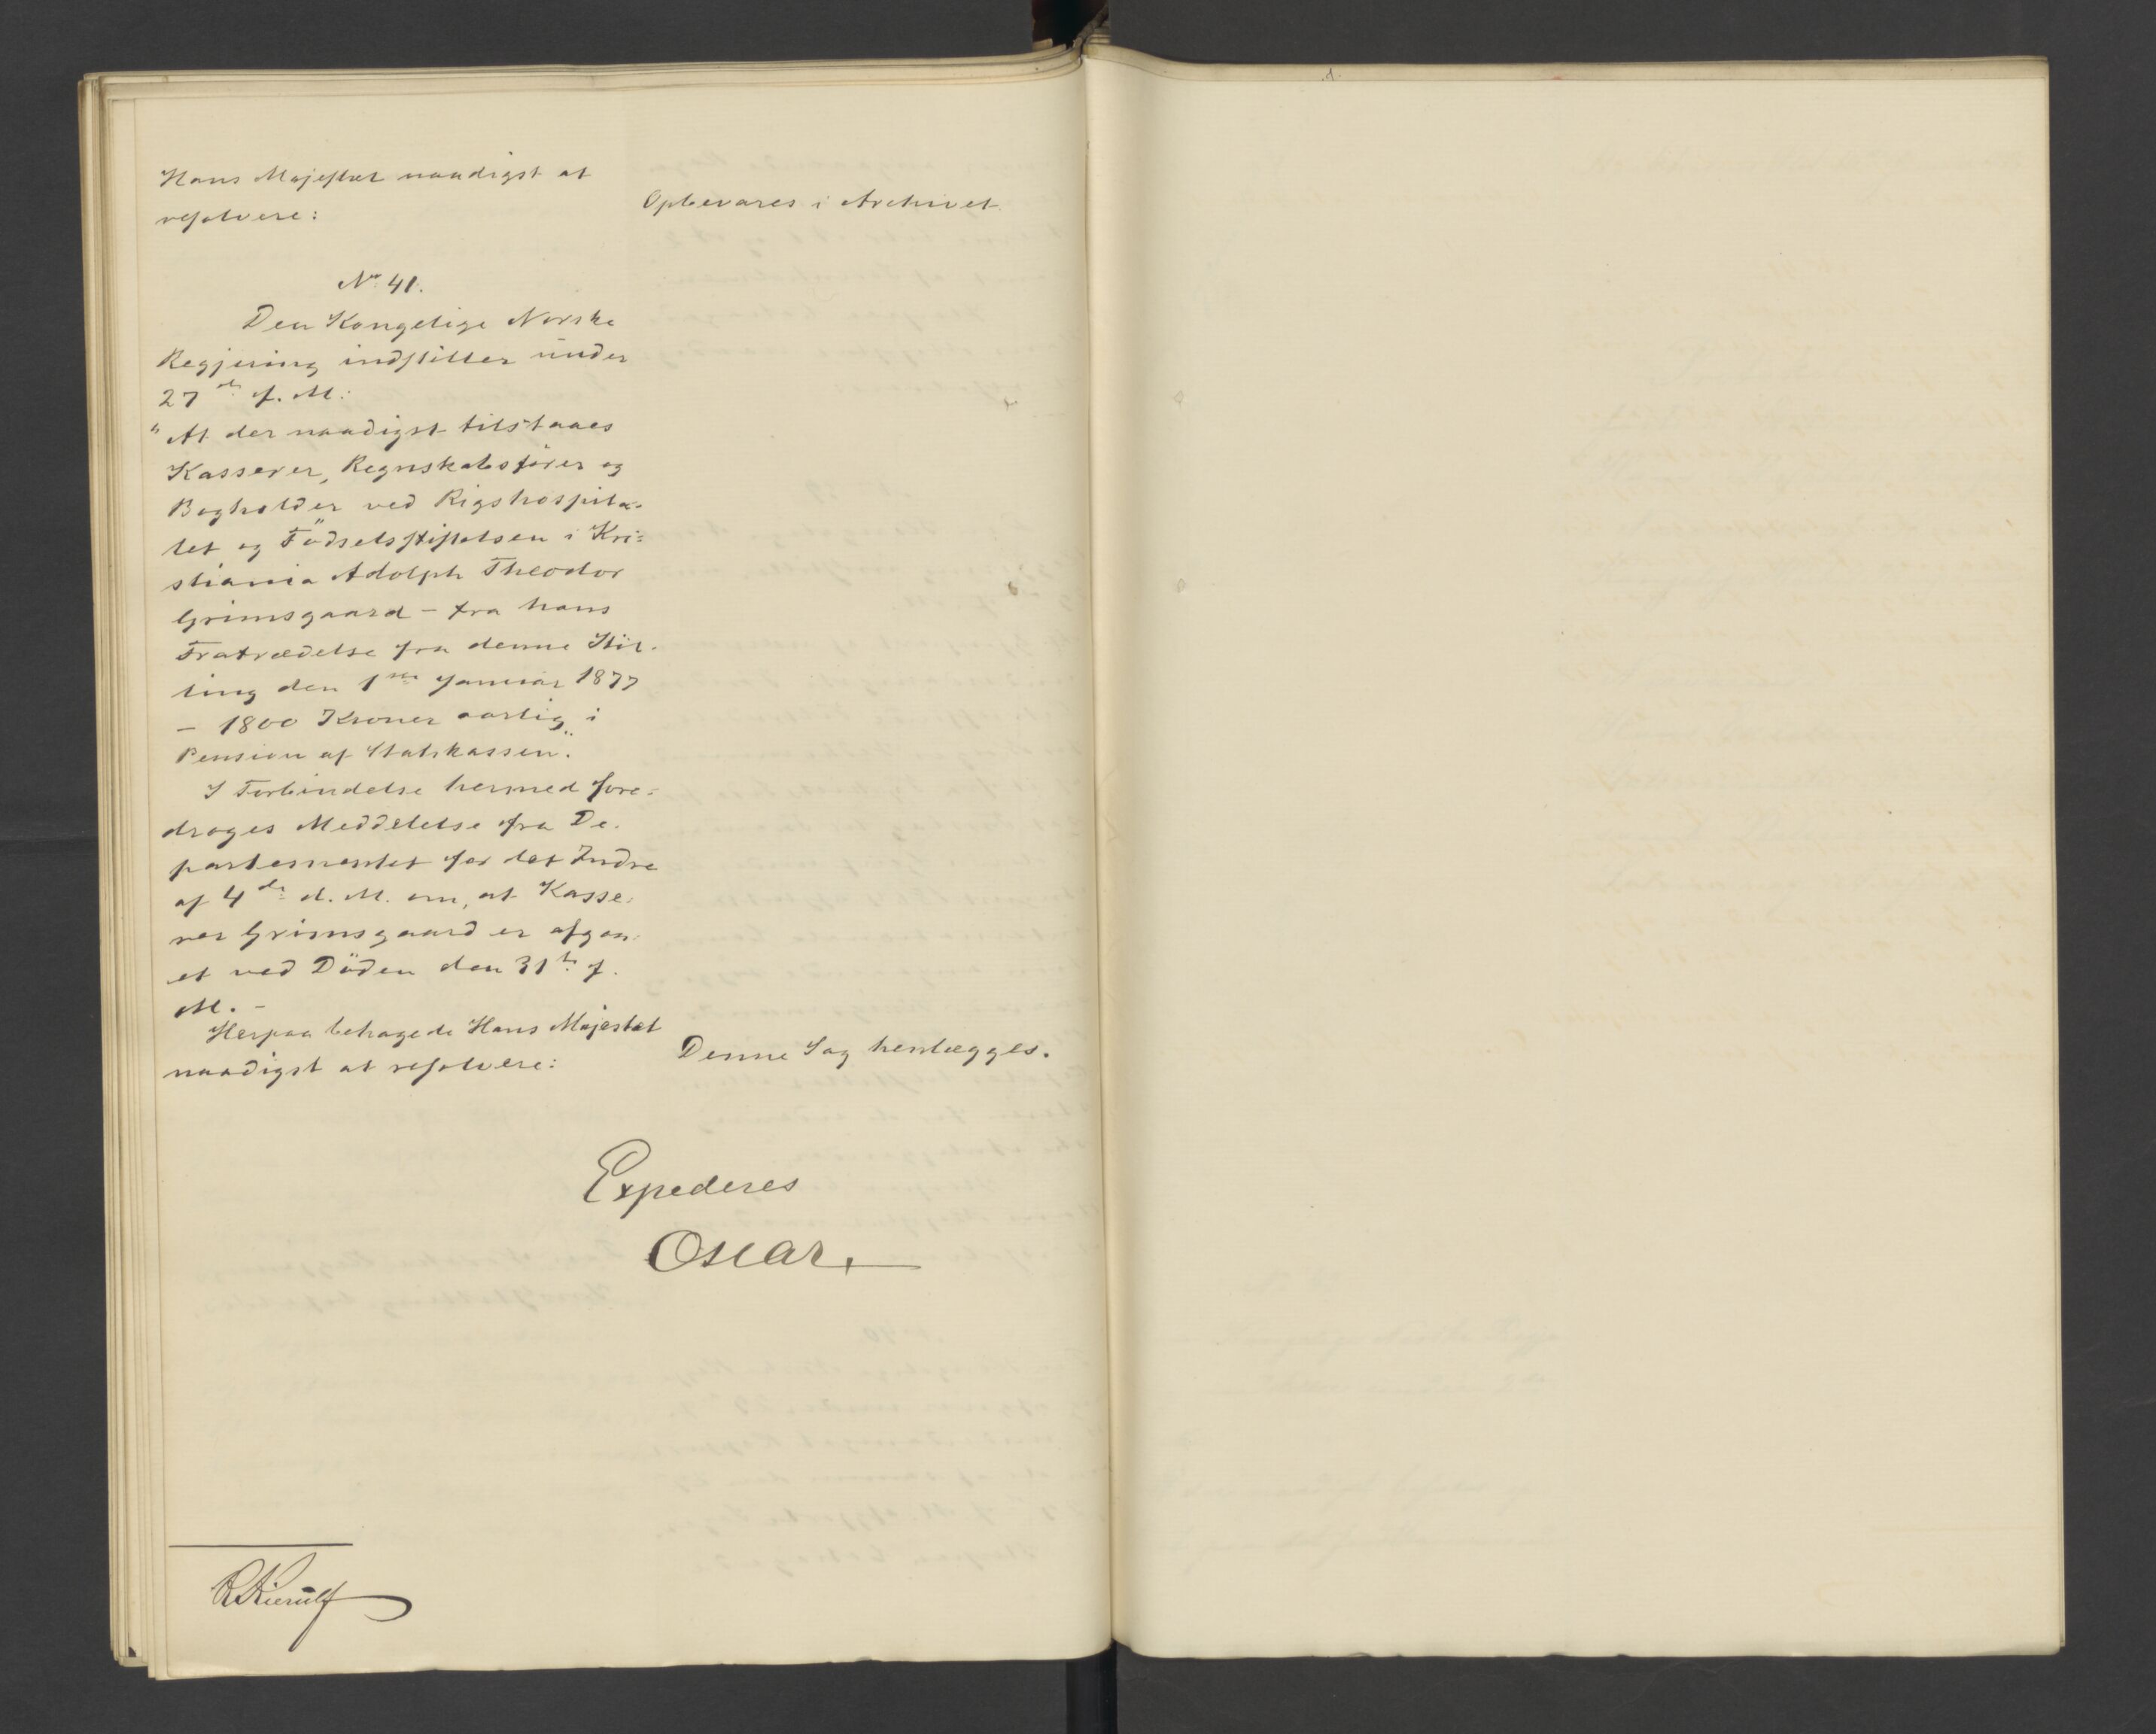 Hans Majestæt naadigst at
resolvere:
Opbevares i Archivet.
No 41.
Den Kongelige Norske
Regjering indstiller under
27de f. M.:
"At der naadigst tilstaaes
Kasserer, Regnskabsfører og
Bogholder ved Rigshospita-
let og Födselsstiftelsen i Kri-
stiania Adolph Theodor
Grimsgaard - fra hans
Fratrædelse fra denne Stil-
ling den 1ste Januar 1877
- 1800 Kroner aarlig i
Pension af Statskassen."
I Forbindelse hermed fore-
droges Meddelelse fra De-
partementet for det Indre
af 4de d. M. om, at Kasse-
rer Grimsgaard er afgaa-
et ved Döden den 31te f.
M. -
Herpaa behagede Hans Majestæt
naadigst at resolvere:
Denne Sag henlægges.
Expederes
Oscar.
Kierulf